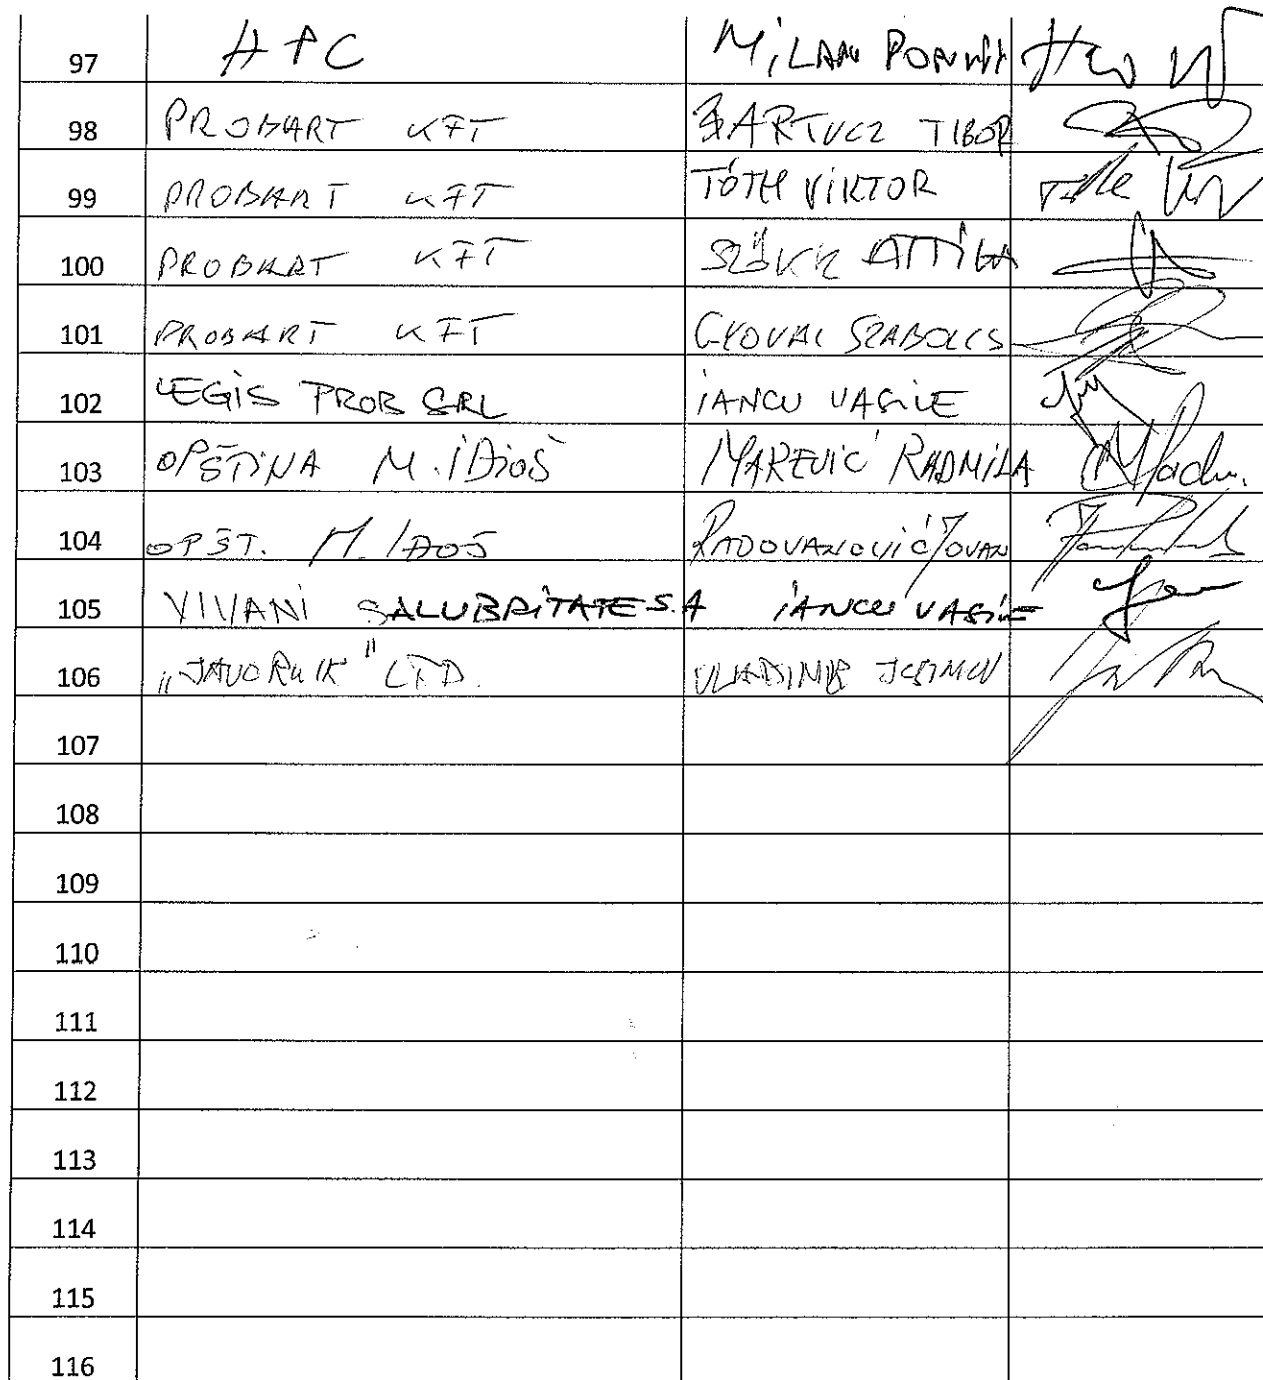 97 MILAN
98 PROBART KFT BARTUCZ TIBOR
99 PROBART KFT TÓTH VIKTOR
100 PROBART KFT SZŐKE ATTILA
101 PROBART KFT GYOVAI SZABOLCS
102 LEGIS PROB SRL IANCU VASILE
103 OPŠTINA M. IĐIOŠ MAREVIĆ RADMILA
104 OPŠT. M. IĐOŠ RADOVANOVIĆ JOVAN
105 VIVANI SALUBRITATE S.A IANCU VASILE
106 „JAVORNIK" LTD. VLADIMIR
107
108
109
110
111
112
113
114
115
116